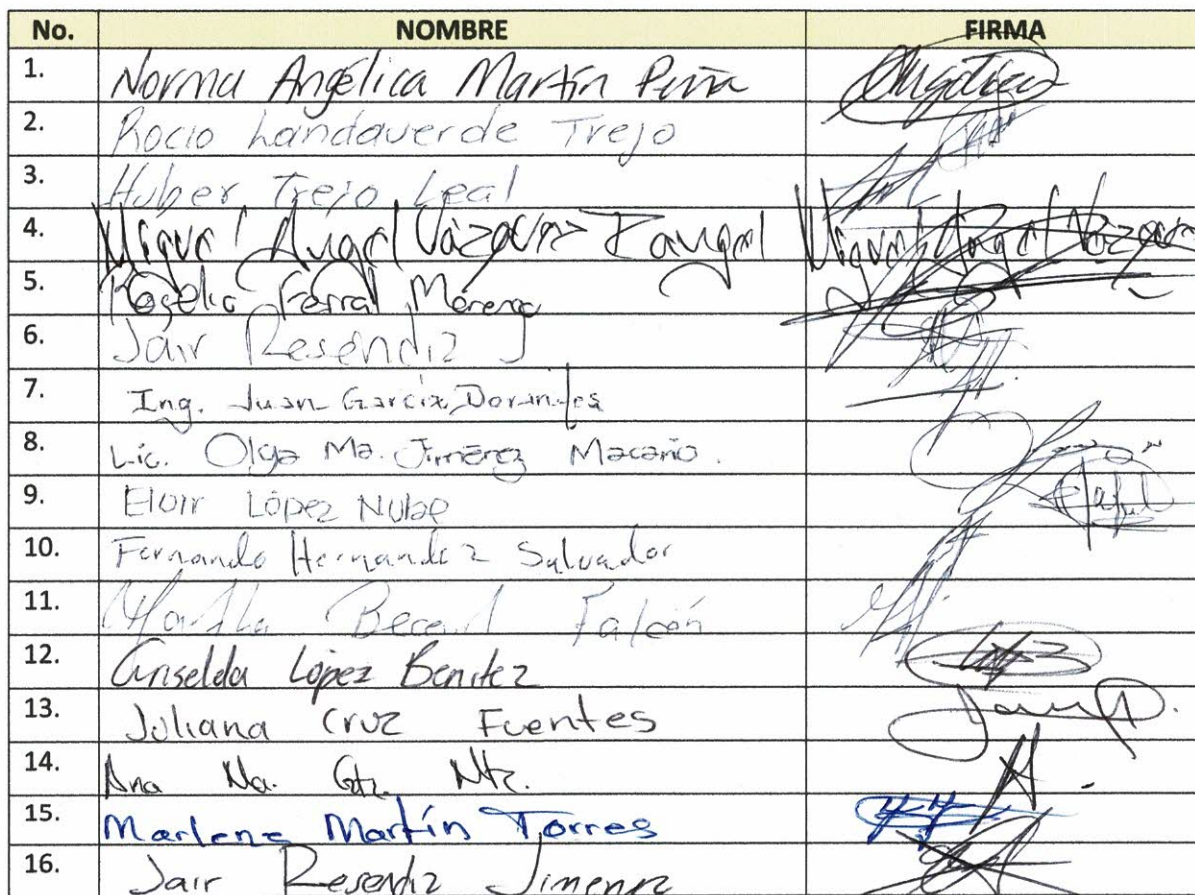 No. NOMBRE FIRMA
1. Norma Angélica Martín Peña
2. Rocio Landaverde Trejo
3. Huber Trejo Leal
4. Miguel Angel Vázquez Rangel Miguel Angel Vázquez
5. Rogelio Ferral Moreno
6. Jair Resendiz J
7. Ing. Juan García Dorantes
8. Lic. Olga Ma. Jiménez Macario.
9. López
10. Fernando Hernandez Salvador
11. Martha Falcón
12. Griselda López Benitez
13. Juliana Cruz Fuentes
14. Ana Ma. Gtz. Mtz.
15. Marlene Martín Torres
16. Jair Resendiz Jimenez